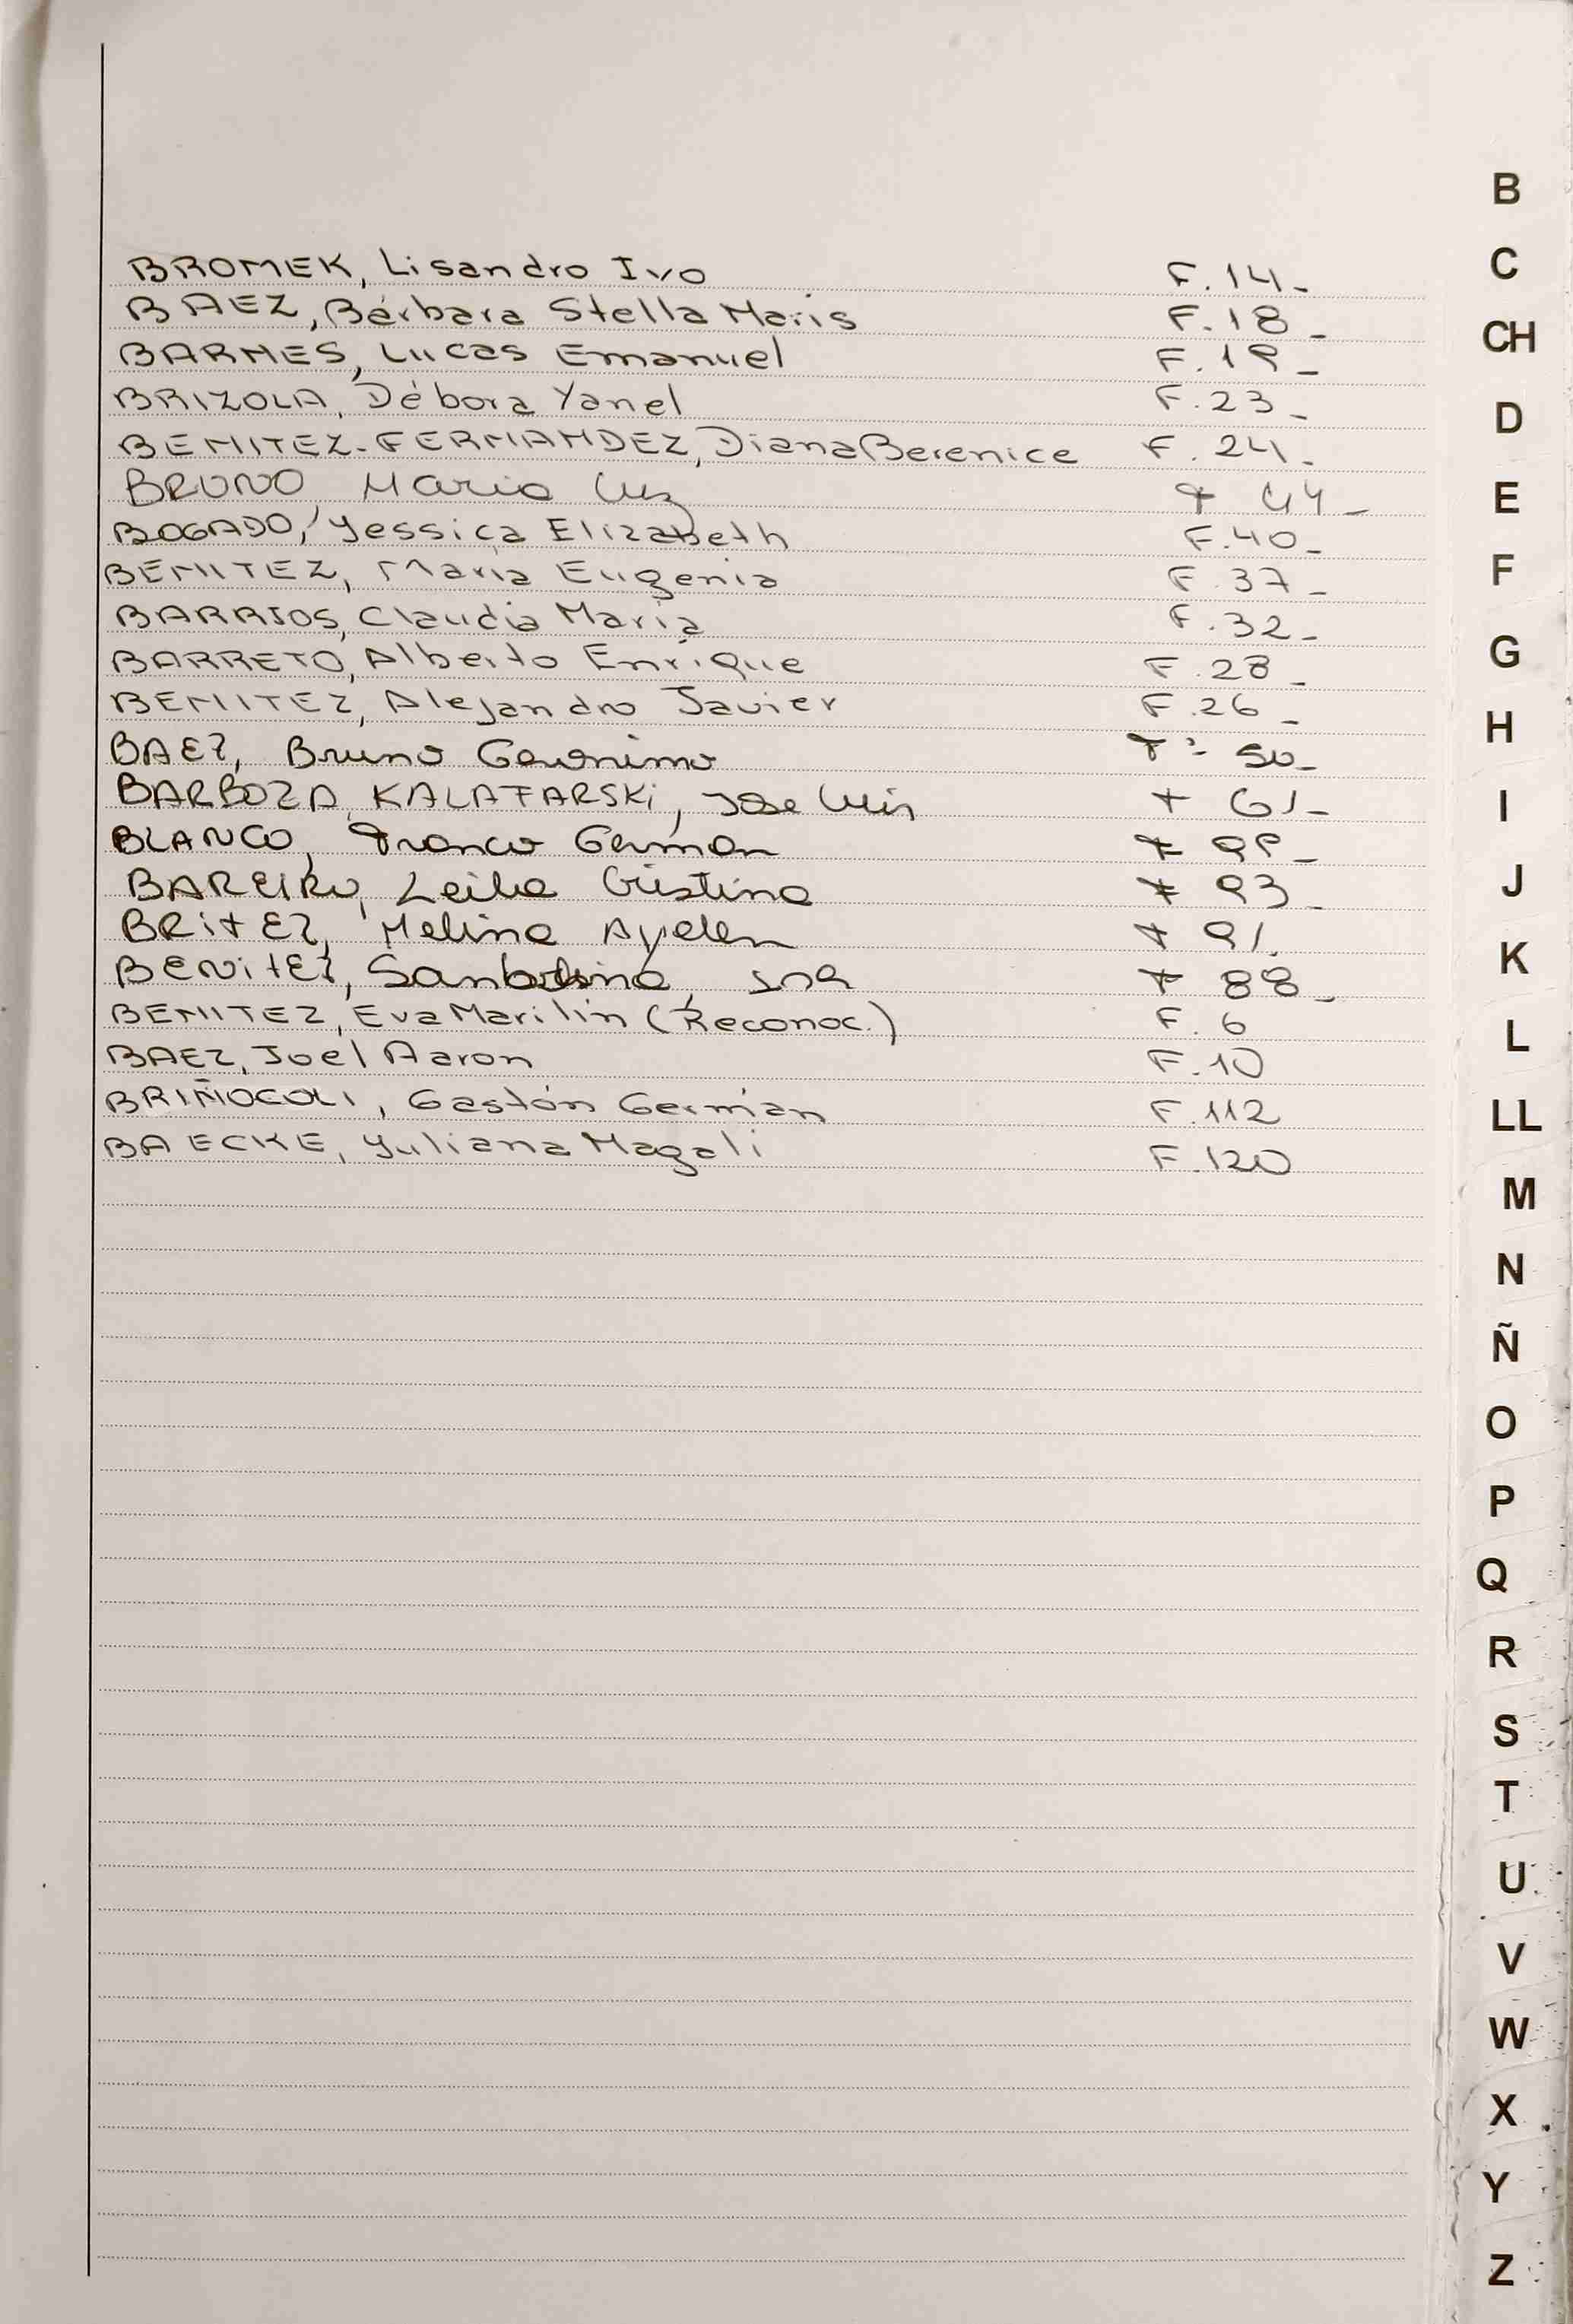 BROMEK, Lisandro Ivo F. 14-
BAEZ, Bárbara Stella Maris F. 18-
BARNES, Lucas Emanuel F. 19-
BRIZOLA, Débora Yanel F. 23-
BENITEZ-FERNANDEZ, Diana Berenice F. 24-
BRUNO Maria Luz F 44-
BOGADO, Yessica Elizabeth F. 40-
BENITEZ, Maria Eugenia F. 37-
BARRIOS, Claudia María F. 32-
BARRETO, Alberto Enrique F. 28-
BENITEZ, Alejandro Javier F. 26-
BAEZ, Bruno Geronimo Fº 50-
BARBOZA KALATARSKi, Jose Luis F 61-
BLANCO, Franco German F 99-
BAREIRO, Leila Cristina F 93-
BRitEZ, Melina Ayelen F 91.
BENitEZ, F 88-
BENITEZ, Eva Marilin (Reconoc.) F. 6
BAEZ, Joel Aaron F. 10
BRIÑOCOLI, Gastón Germán F. 112
BAECKE, Yuliana Magali F. 120
B
C
CH
D
E
F
G
H
I
J
K
L
LL
M
N
Ñ
O
P
Q
R
S
T
U
V
W
X
Y
Z